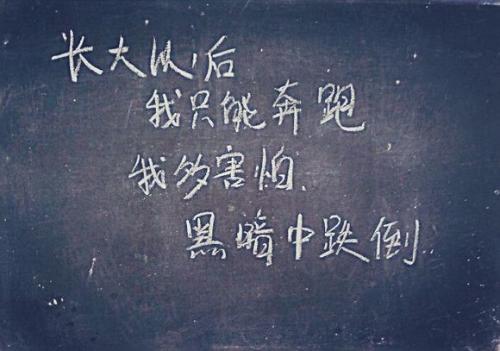 长大以后
我只能奔跑
我多害怕、
黑暗中跌倒